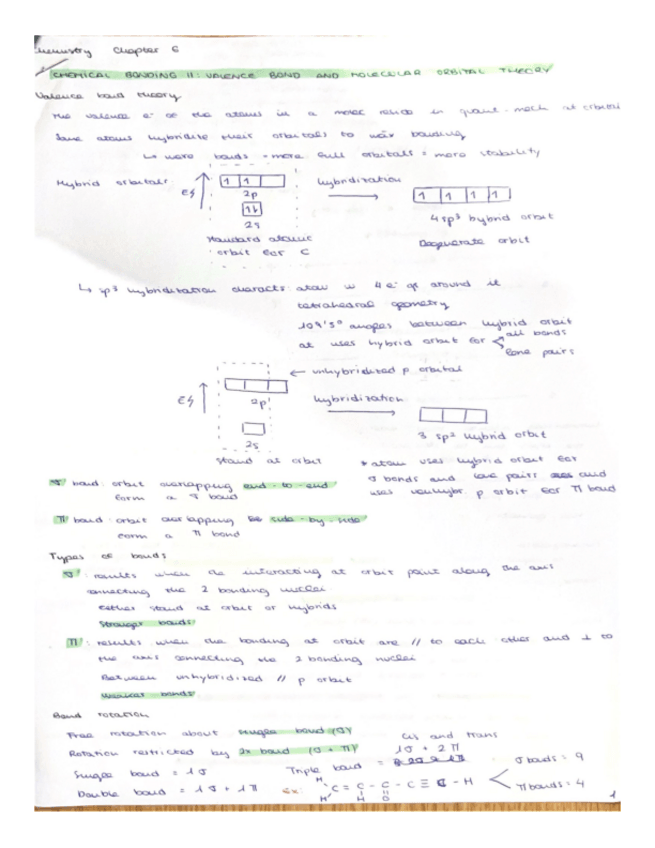 Chemistry Chapter 6
CHEMICAL BONDING II: VALENCE BOND AND MOLECULAR ORBITAL THEORY
Valence bond theory
The valence e⁻ of the atoms in a molec reside in quant-mech at orbital
Some atoms hybridize their orbitals to max bonding
↳ more bonds = more full orbitals = more stability
Hybrid orbitals
hybridization
2p
2s
4 sp³ hybrid orbit
Standard atomic
orbit for C
Degenerate orbit
↳ sp³ hybridization characts: atom w 4 e⁻ gr around it
tetrahedral geometry
109'5° angles between hybrid orbit
at uses hybrid orbit for < all bonds
lone pairs
← unhybridized p orbital
hybridization
2p
2s
3 sp² hybrid orbit
Stand at orbit
* atom uses hybrid orbit for
σ bond: orbit overlapping end-to-end
form a σ bond
σ bonds and lone pairs and
uses unhybr p orbit for π bond
π bond: orbit overlapping side-by-side
form a π bond
Types of bonds
σ: results when the interacting at orbit point along the axis
connecting the 2 bonding nuclei
Either stand at orbit or hybrids
Stronger bonds
π: results when the bonding at orbit are // to each other and ⊥ to
the axis connecting the 2 bonding nuclei
Between unhybridized // p orbit
Weaker bonds
Bond rotation
Free rotation about single bond (σ)
Cis and trans
Rotation restricted by 2x bond (σ + π)
Single bond = 1σ
Triple bond = 1σ + 2π
Double bond = 1σ + 1π
ex: H H C = C - C - C ≡ C - H
H O
σ bonds = 9
π bonds = 4
1